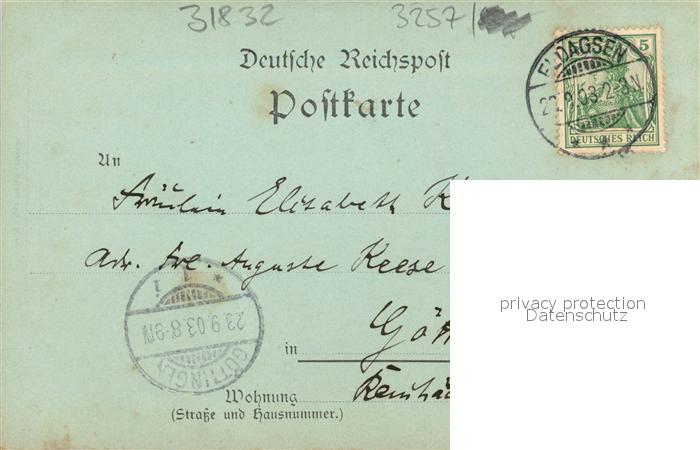 31832 3257/
Deutsche Reichspost
Postkarte
ELDAGSEN
22.9.03.2-3N
5
DEUTSCHES REICH
An
Fräulein Elisabeth K
Adr. Frl. Auguste Keese
GÖTTINGEN
23.9.03.8-9N
1
in Gött
Wohnung
(Straße und Hausnummer.)
privacy protection
Datenschutz